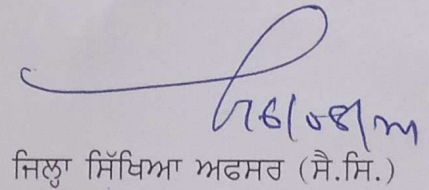 ਜਿਲ੍ਹਾ ਸਿੱਖਿਆ ਅਫਸਰ (ਸੈ.ਸਿ.)